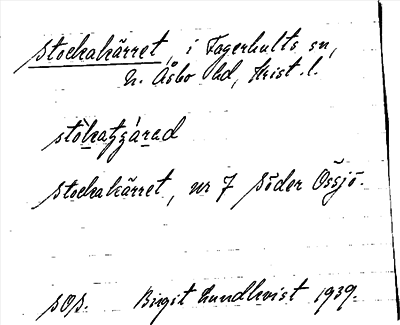 Stockakärret, i Fagerhults sn,
N. Åsbo hd, Krist. l.
Stockakärret, nr 7 Söder Össjö.
sOs. Birgit Lundkvist 1939.